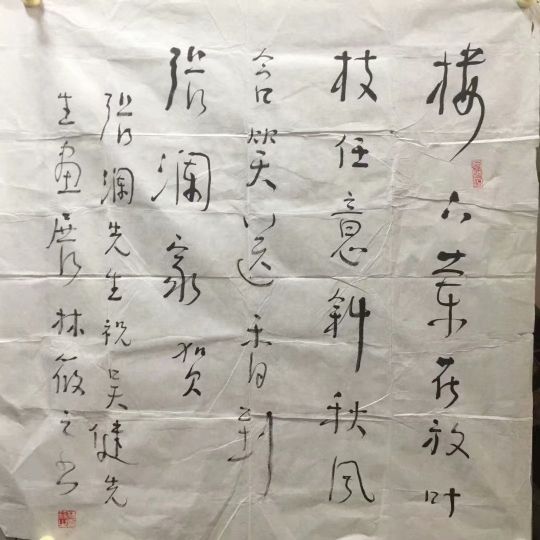 楼下兰花放叶
枝任意斜秋风
含笑送香到
张澜家贺
张澜先生祝吴健先
生画展林筱之书